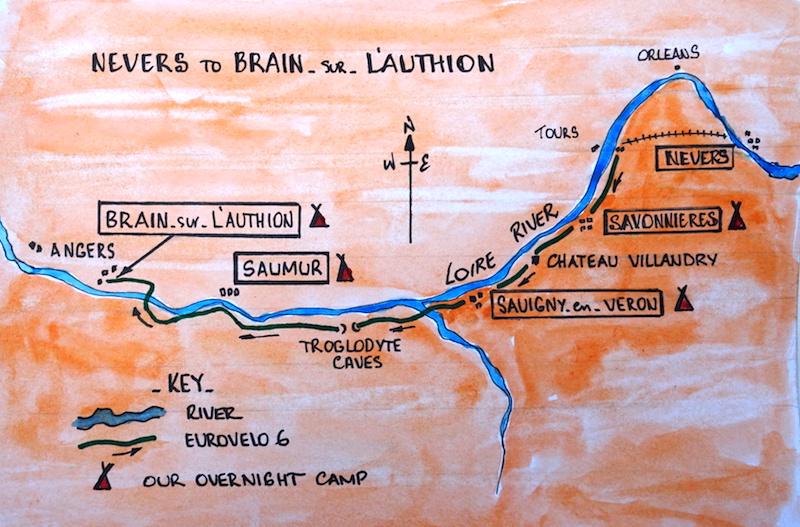 NEVERS TO BRAIN-SUR-L'AUTHION
ORLEANS
TOURS
N
W E
NEVERS
BRAIN-SUR-L'AUTHION
SAVONNIERES
ANGERS
LOIRE RIVER
SAUMUR
CHATEAU VILLANDRY
SAVIGNY-en-VERON
TROGLODYTE
CAVES
-KEY-
RIVER
EUROVELO 6
OUR OVERNIGHT CAMP